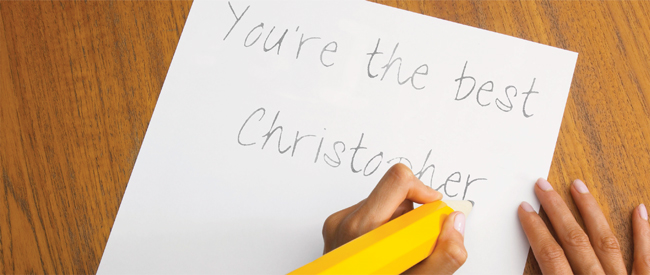 You're the best
Christopher